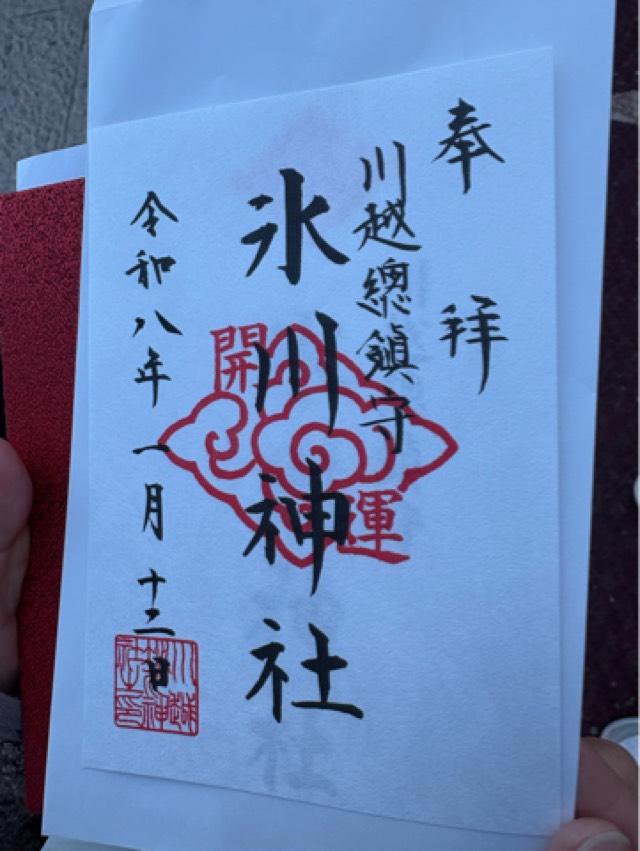 奉拝
川越總鎮守
氷川神社
開運
令和八年一月十二日